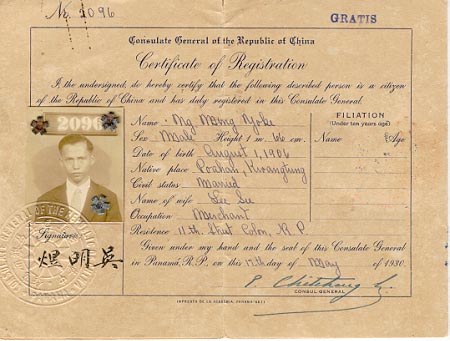 No. 2096
GRATIS
Consulate General of the Republic of China
Certificate of Registration
I the undersigned, do hereby certify that the following described person is a citizen
of the Republic of China and has duly registered in this Consulate General.
2096
Name Ng Meng Yoke
Sex Male Height 1 m. 66 cm.
Date of birth August 1, 1906
Native place Kwangtung
Civil status Married
Name of wife Lee Su
Occupation Merchant
Residence 11th Street Colon, R.P.
FILIATION
(Under ten years age)
Name Age
Signature
煜明吳
Given under my hand and the seal of this Consulate General
in Panamá, R.P., on this 17th day of May of 1930.
CONSUL GENERAL
IMPRENTA DE LA ACADEMIA, PANAMA